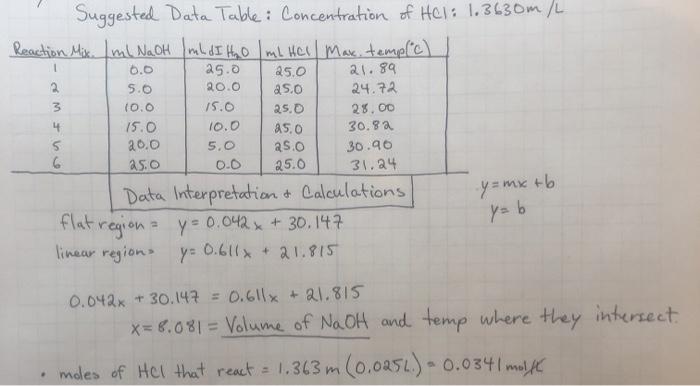 Suggested Data Table: Concentration of HCl: 1.3630m/L
Reaction Mix. mL NaOH mL dI H₂O mL HCl Max. temp(°c)
1 0.0 25.0 25.0 21.89
2 5.0 20.0 25.0 24.72
3 10.0 15.0 25.0 28.00
4 15.0 10.0 25.0 30.82
5 20.0 5.0 25.0 30.90
6 25.0 0.0 25.0 31.24
Data Interpretation + Calculations
y=mx+b
y=b
flat region = y = 0.042x + 30.147
linear region= y= 0.611x + 21.815
0.042x + 30.147 = 0.611x + 21.815
x= 8.081 = Volume of NaOH and temp where they intersect.
• moles of HCl that react = 1.363m (0.025L) = 0.0341 mol